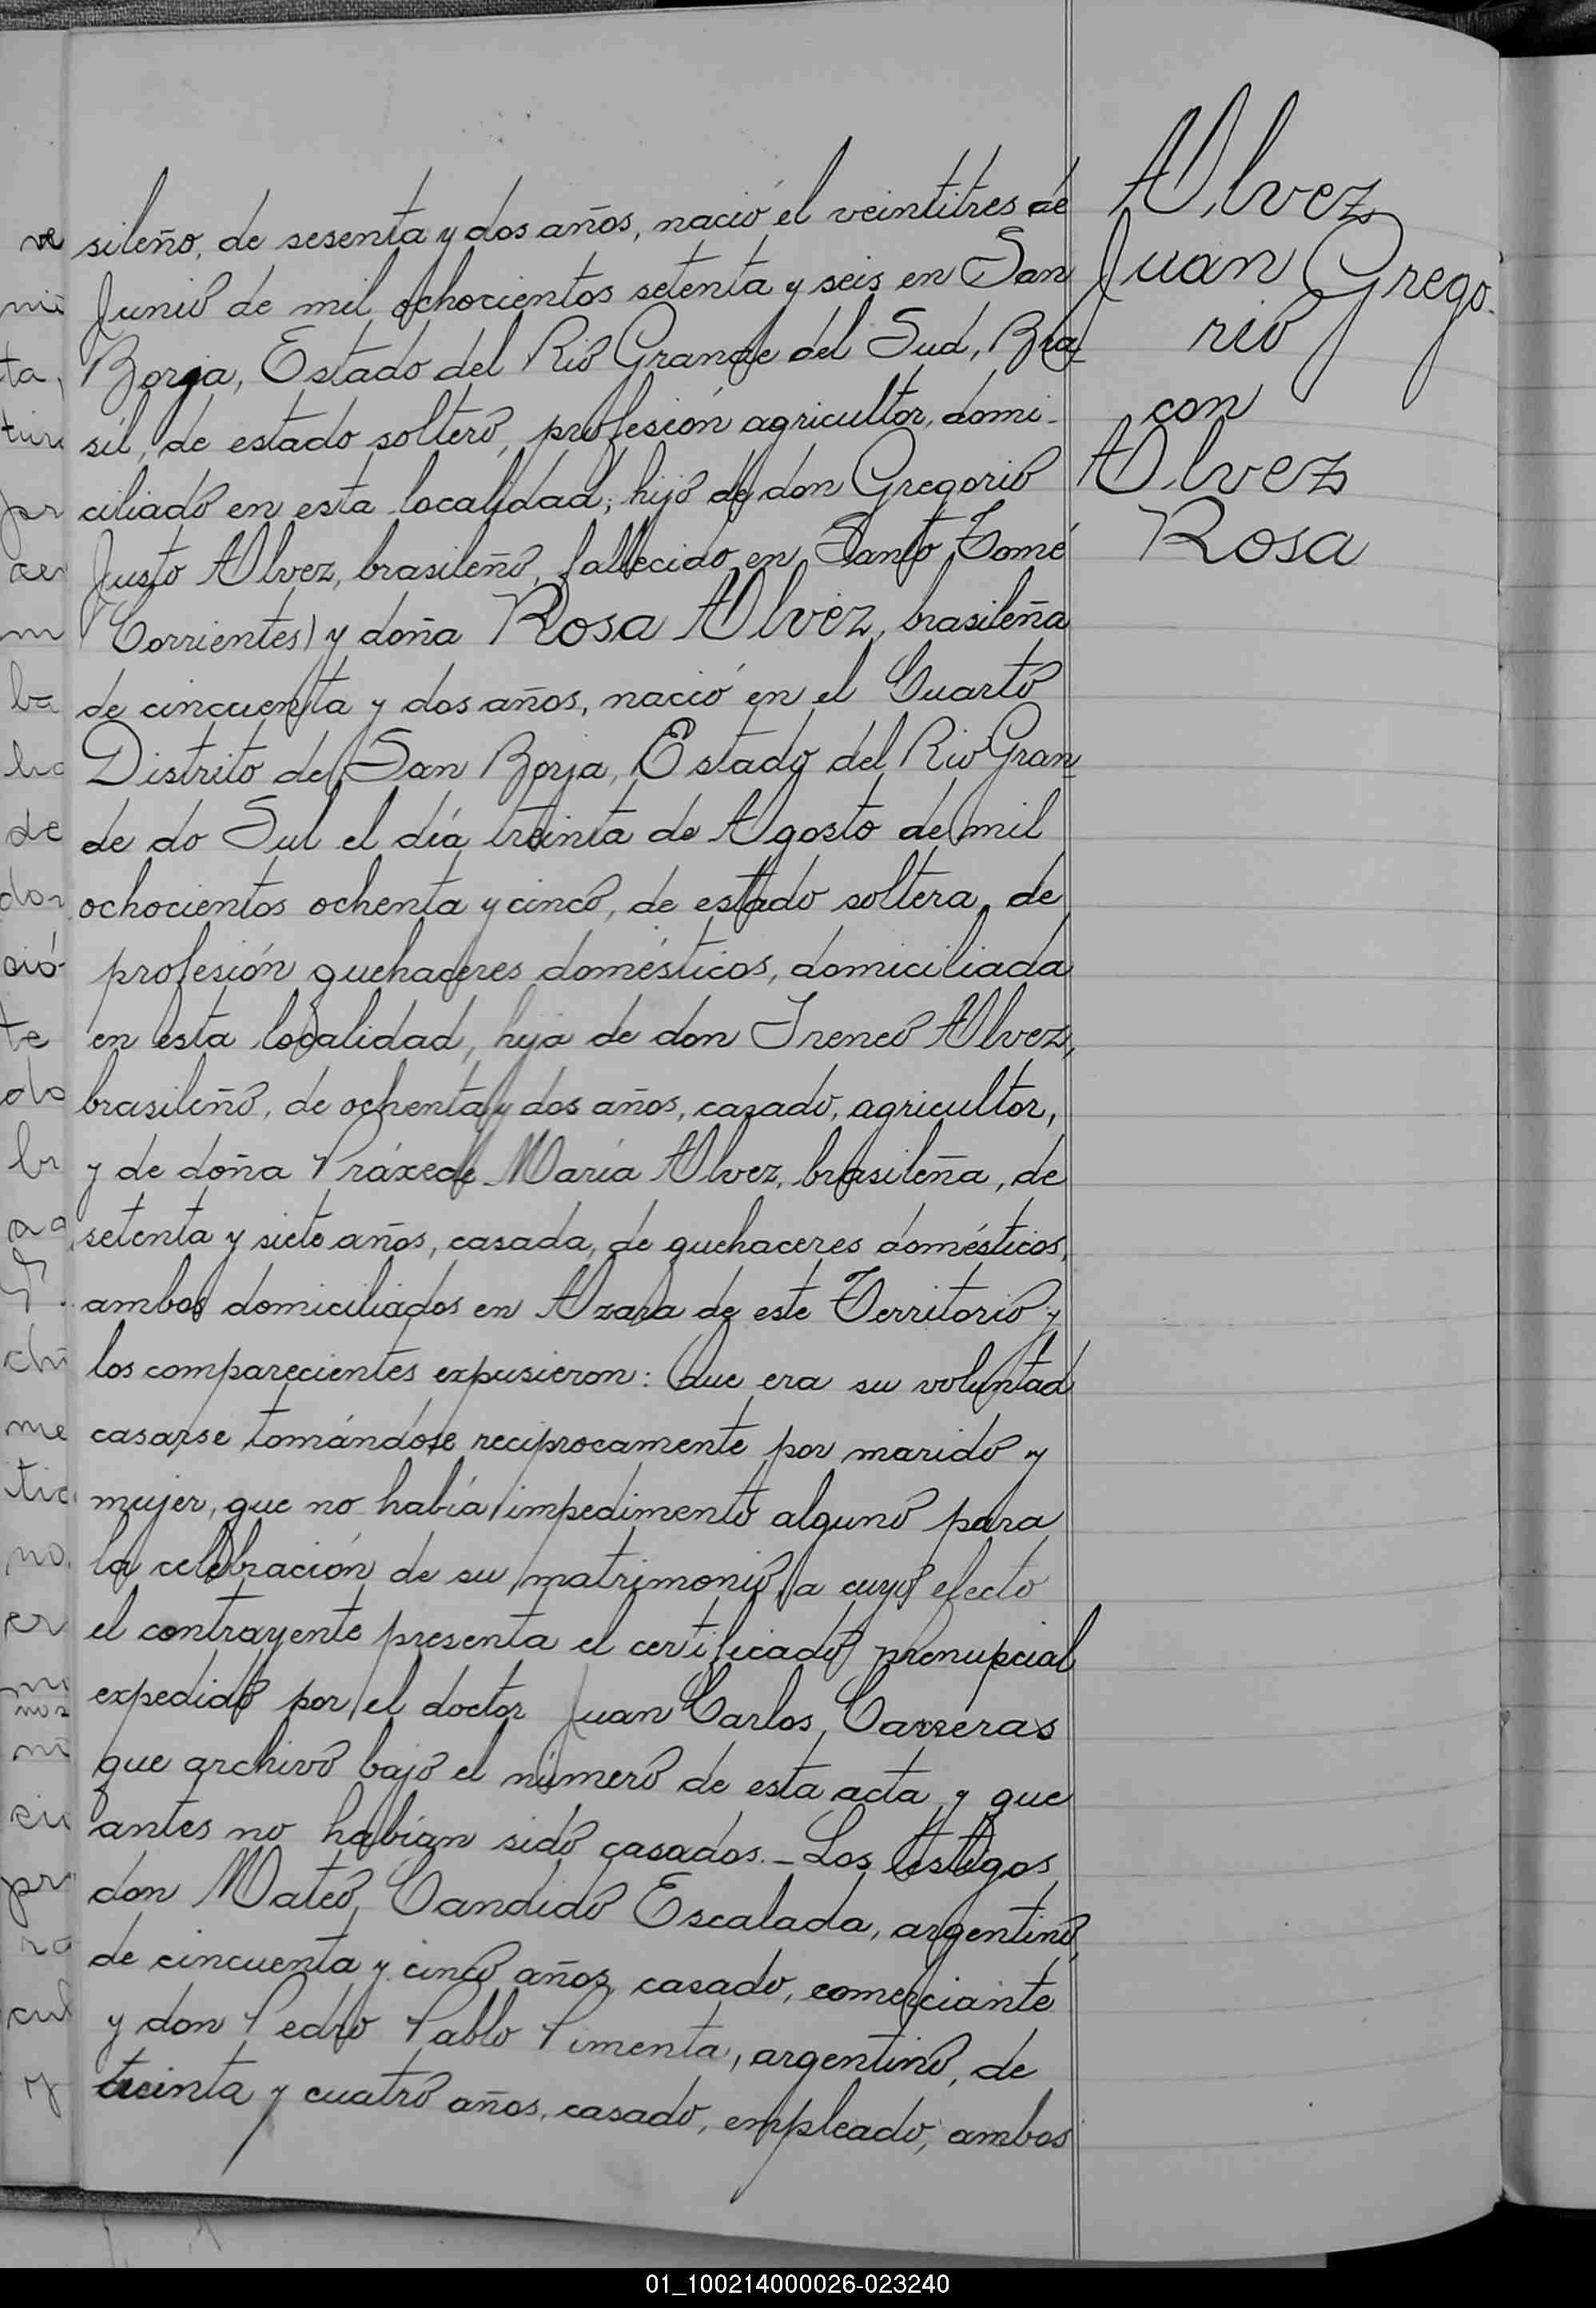 sileño, de sesenta y dos años, nació el veintitres de
Junio de mil ochocientos setenta y seis en San
Borja, Estado del Rio Grande del Sud, Bra
sil, de estado soltero, profesión agricultor, domi-
ciliado en esta localidad; hijo de don Gregorio
Justo Alvez, brasileño, fallecido en Santo Tomé
(Corrientes) y doña Rosa Alvez, brasileña
de cincuenta y dos años, nació en el Cuarto
Distrito de San Borja, Estado del Rio Gran
de do Sul el día treinta de Agosto de mil
ochocientos ochenta y cinco, de estado soltera, de
profesión quehaceres domésticos, domiciliada
en esta localidad, hija de don Ireneo Alvez,
brasileño, de ochenta y dos años, casado, agricultor,
y de doña Práxede María Alvez, brasileña, de
setenta y siete años, casada, de quehaceres domésticos,
ambos domiciliados en Azara de este Territorio y
los comparecientes expusieron: Que era su voluntad
casarse tomándose reciprocamente por marido y
mujer, que no había impedimento alguno para
la celebración de su matrimonio, a cuyo efecto
el contrayente presenta el certificado prenupcial
expedido por el doctor Juan Carlos Carreras
que archivo bajo el número de esta acta y que
antes no habían sido casados.- Los testigos
don Mateo Candido Escalada, argentino,
de cincuenta y cinco años, casado, comerciante
y don Pedro Pablo Pimenta, argentino, de
treinta y cuatro años, casado, empleado, ambos
Alvez
Juan Grego-
rio
con
Alvez
Rosa
01_100214000026-023240